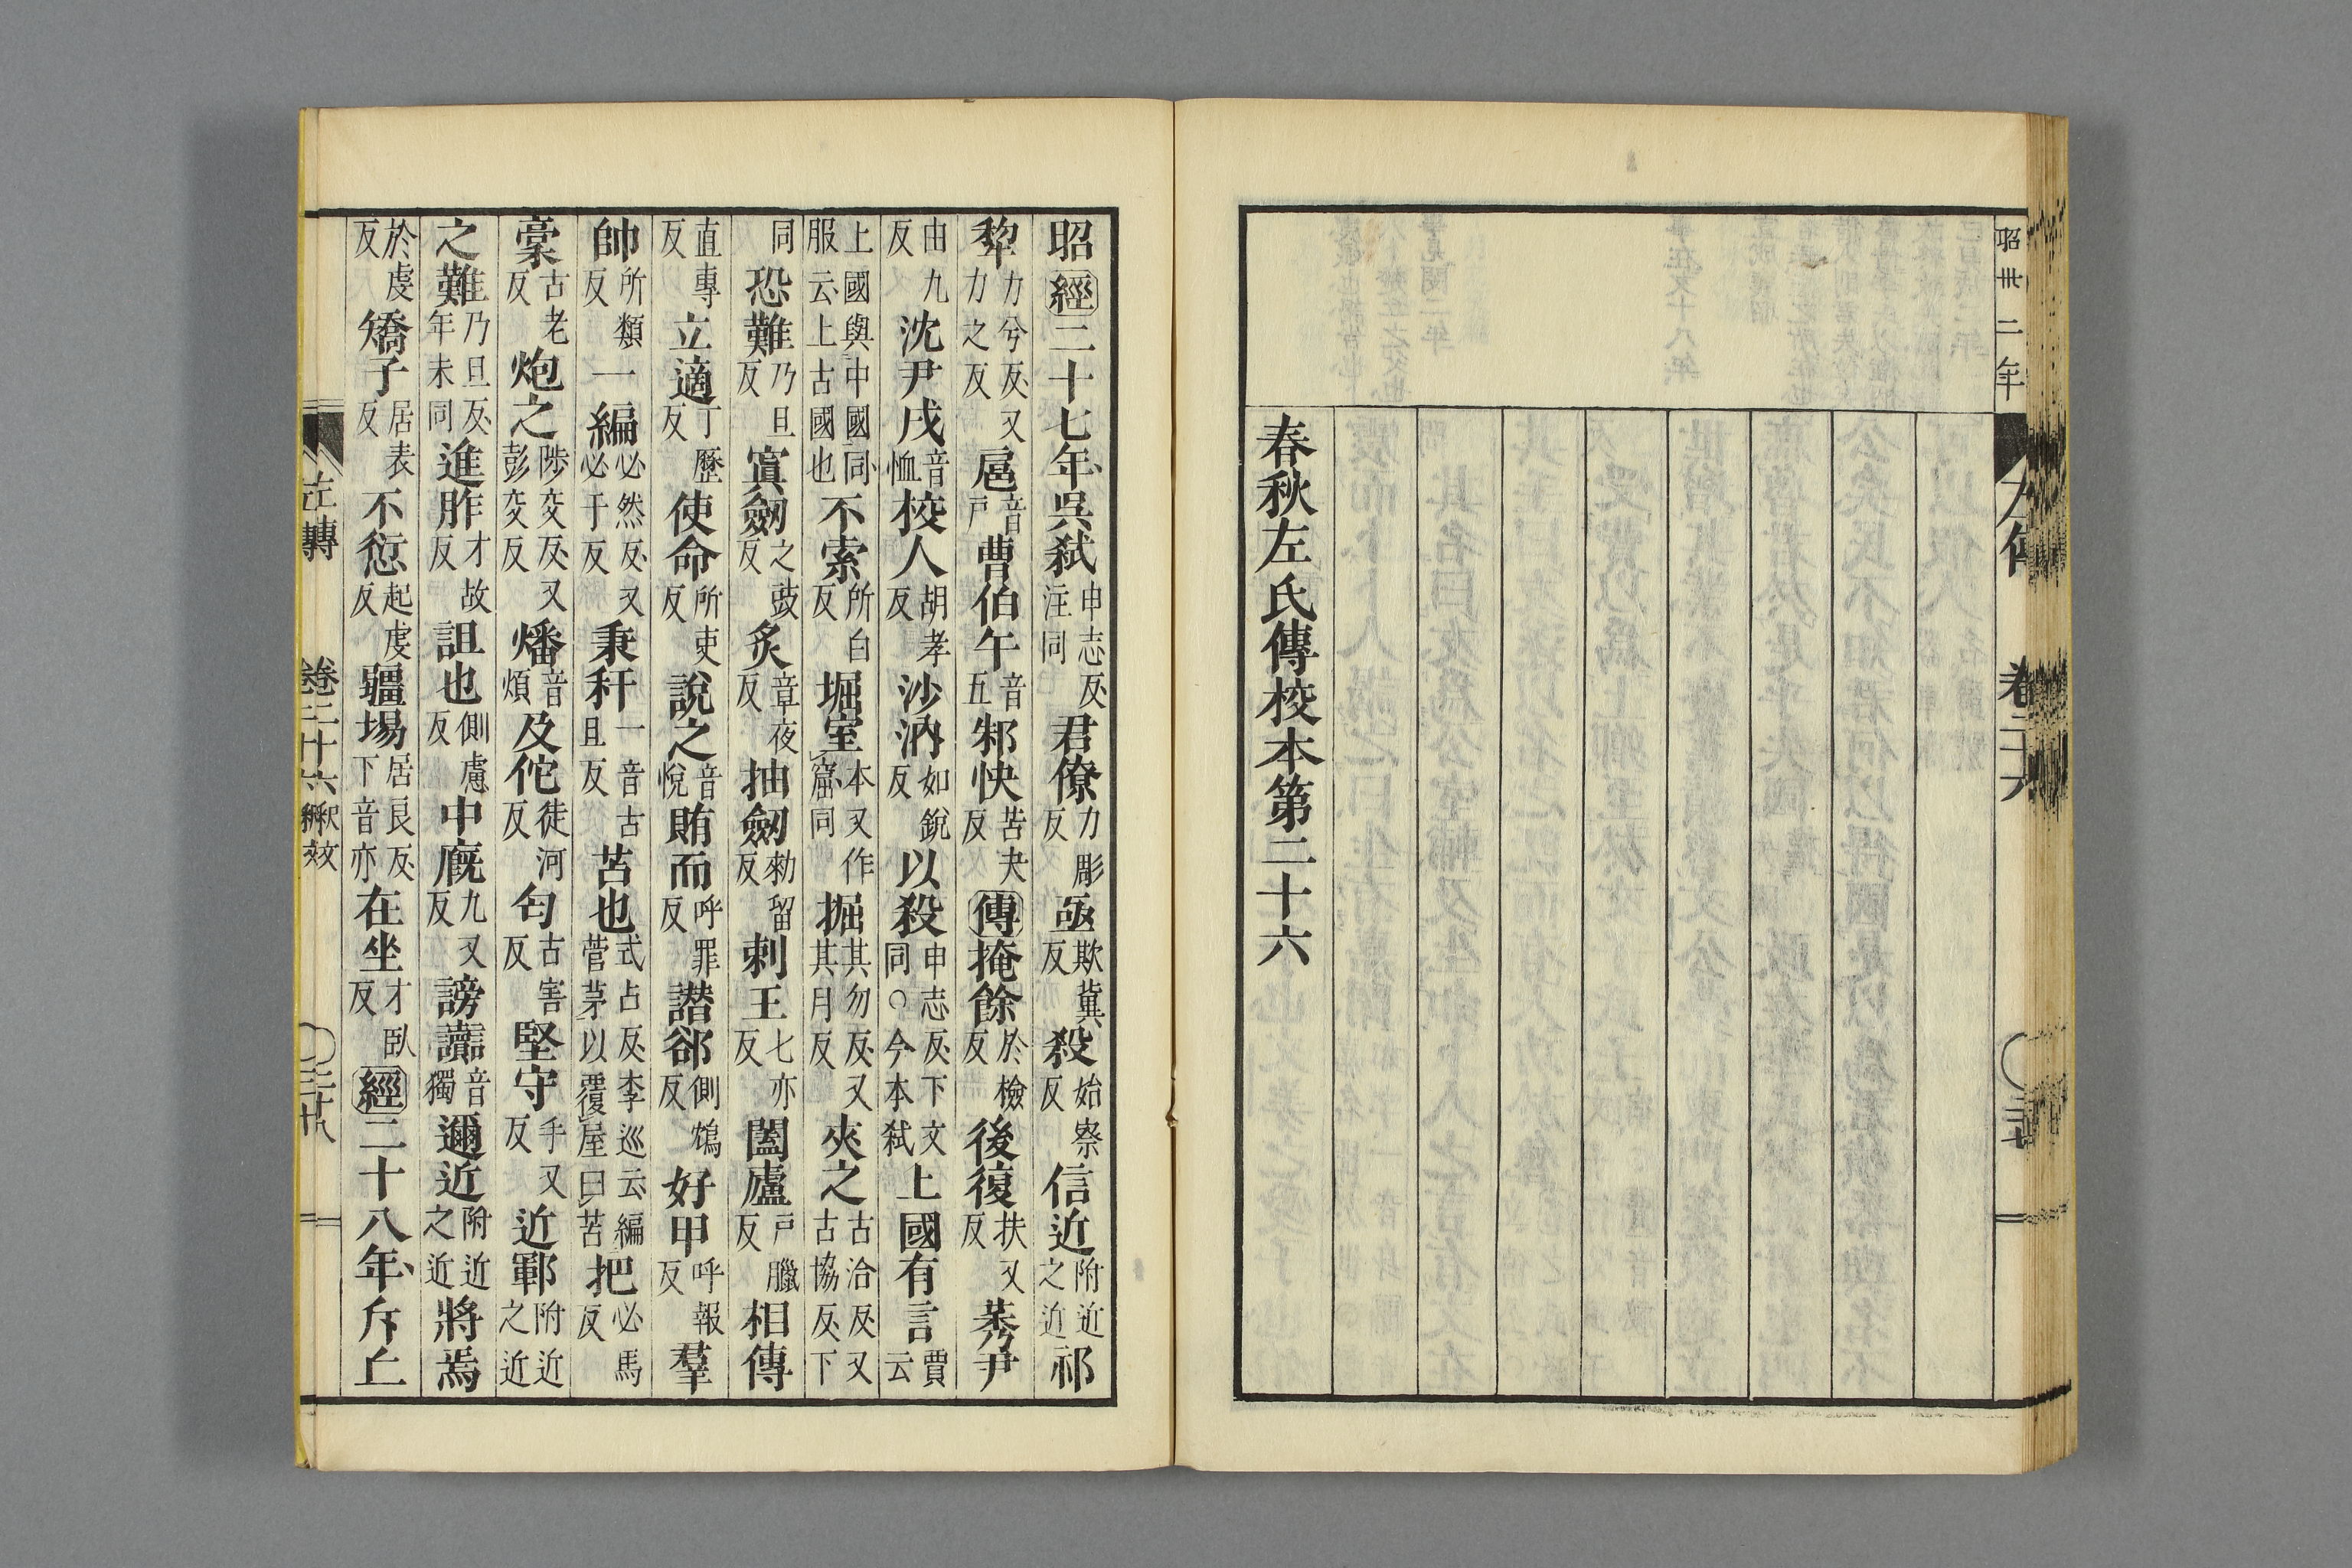 昭卅二年
春秋左氏傳校本第二十六
昭經二十七年吳弒申志反注同君僚力彫反亟欺冀反殺始察反信近附近之近祁
犂力兮反又力之反扈音戶曹伯午音五邾快苦夬反傳掩餘於檢反後復扶又反莠尹
由九反沈尹戌音恤校人胡孝反沙汭如銳反以殺申志反下文同○今本弒上國有言賈云
上國與中國同服云上古國也不索所白反堀室本又作窟同掘其勿反又其月反夾之古洽反又古協反下
同恐難乃旦反寘劔之豉反炙章夜反抽劔勑留反刺王七亦反闔廬戶臘反相傳
直專反立適丁歷反使命所吏反說之音悅賄而呼罪反譖郤側鴆反好甲呼報反羣
帥所類反一編必然反又必千反秉秆一音古且反苫也式占反李巡云編菅茅以覆屋曰苫把必馬反
槀古老反炮之陟交反又彭交反燔音煩及佗徒河反匄古害反堅守手又反近鄆附近之近
之難乃旦反年未同進胙才故反詛也側慮反中廐九又反謗讟音獨邇近附近之近將焉
於虔反矯子居表反不愆起虔反疆場居良反下音亦在坐才臥反經二十八年斥丘
左傳 卷二十六釈文 ○二十八